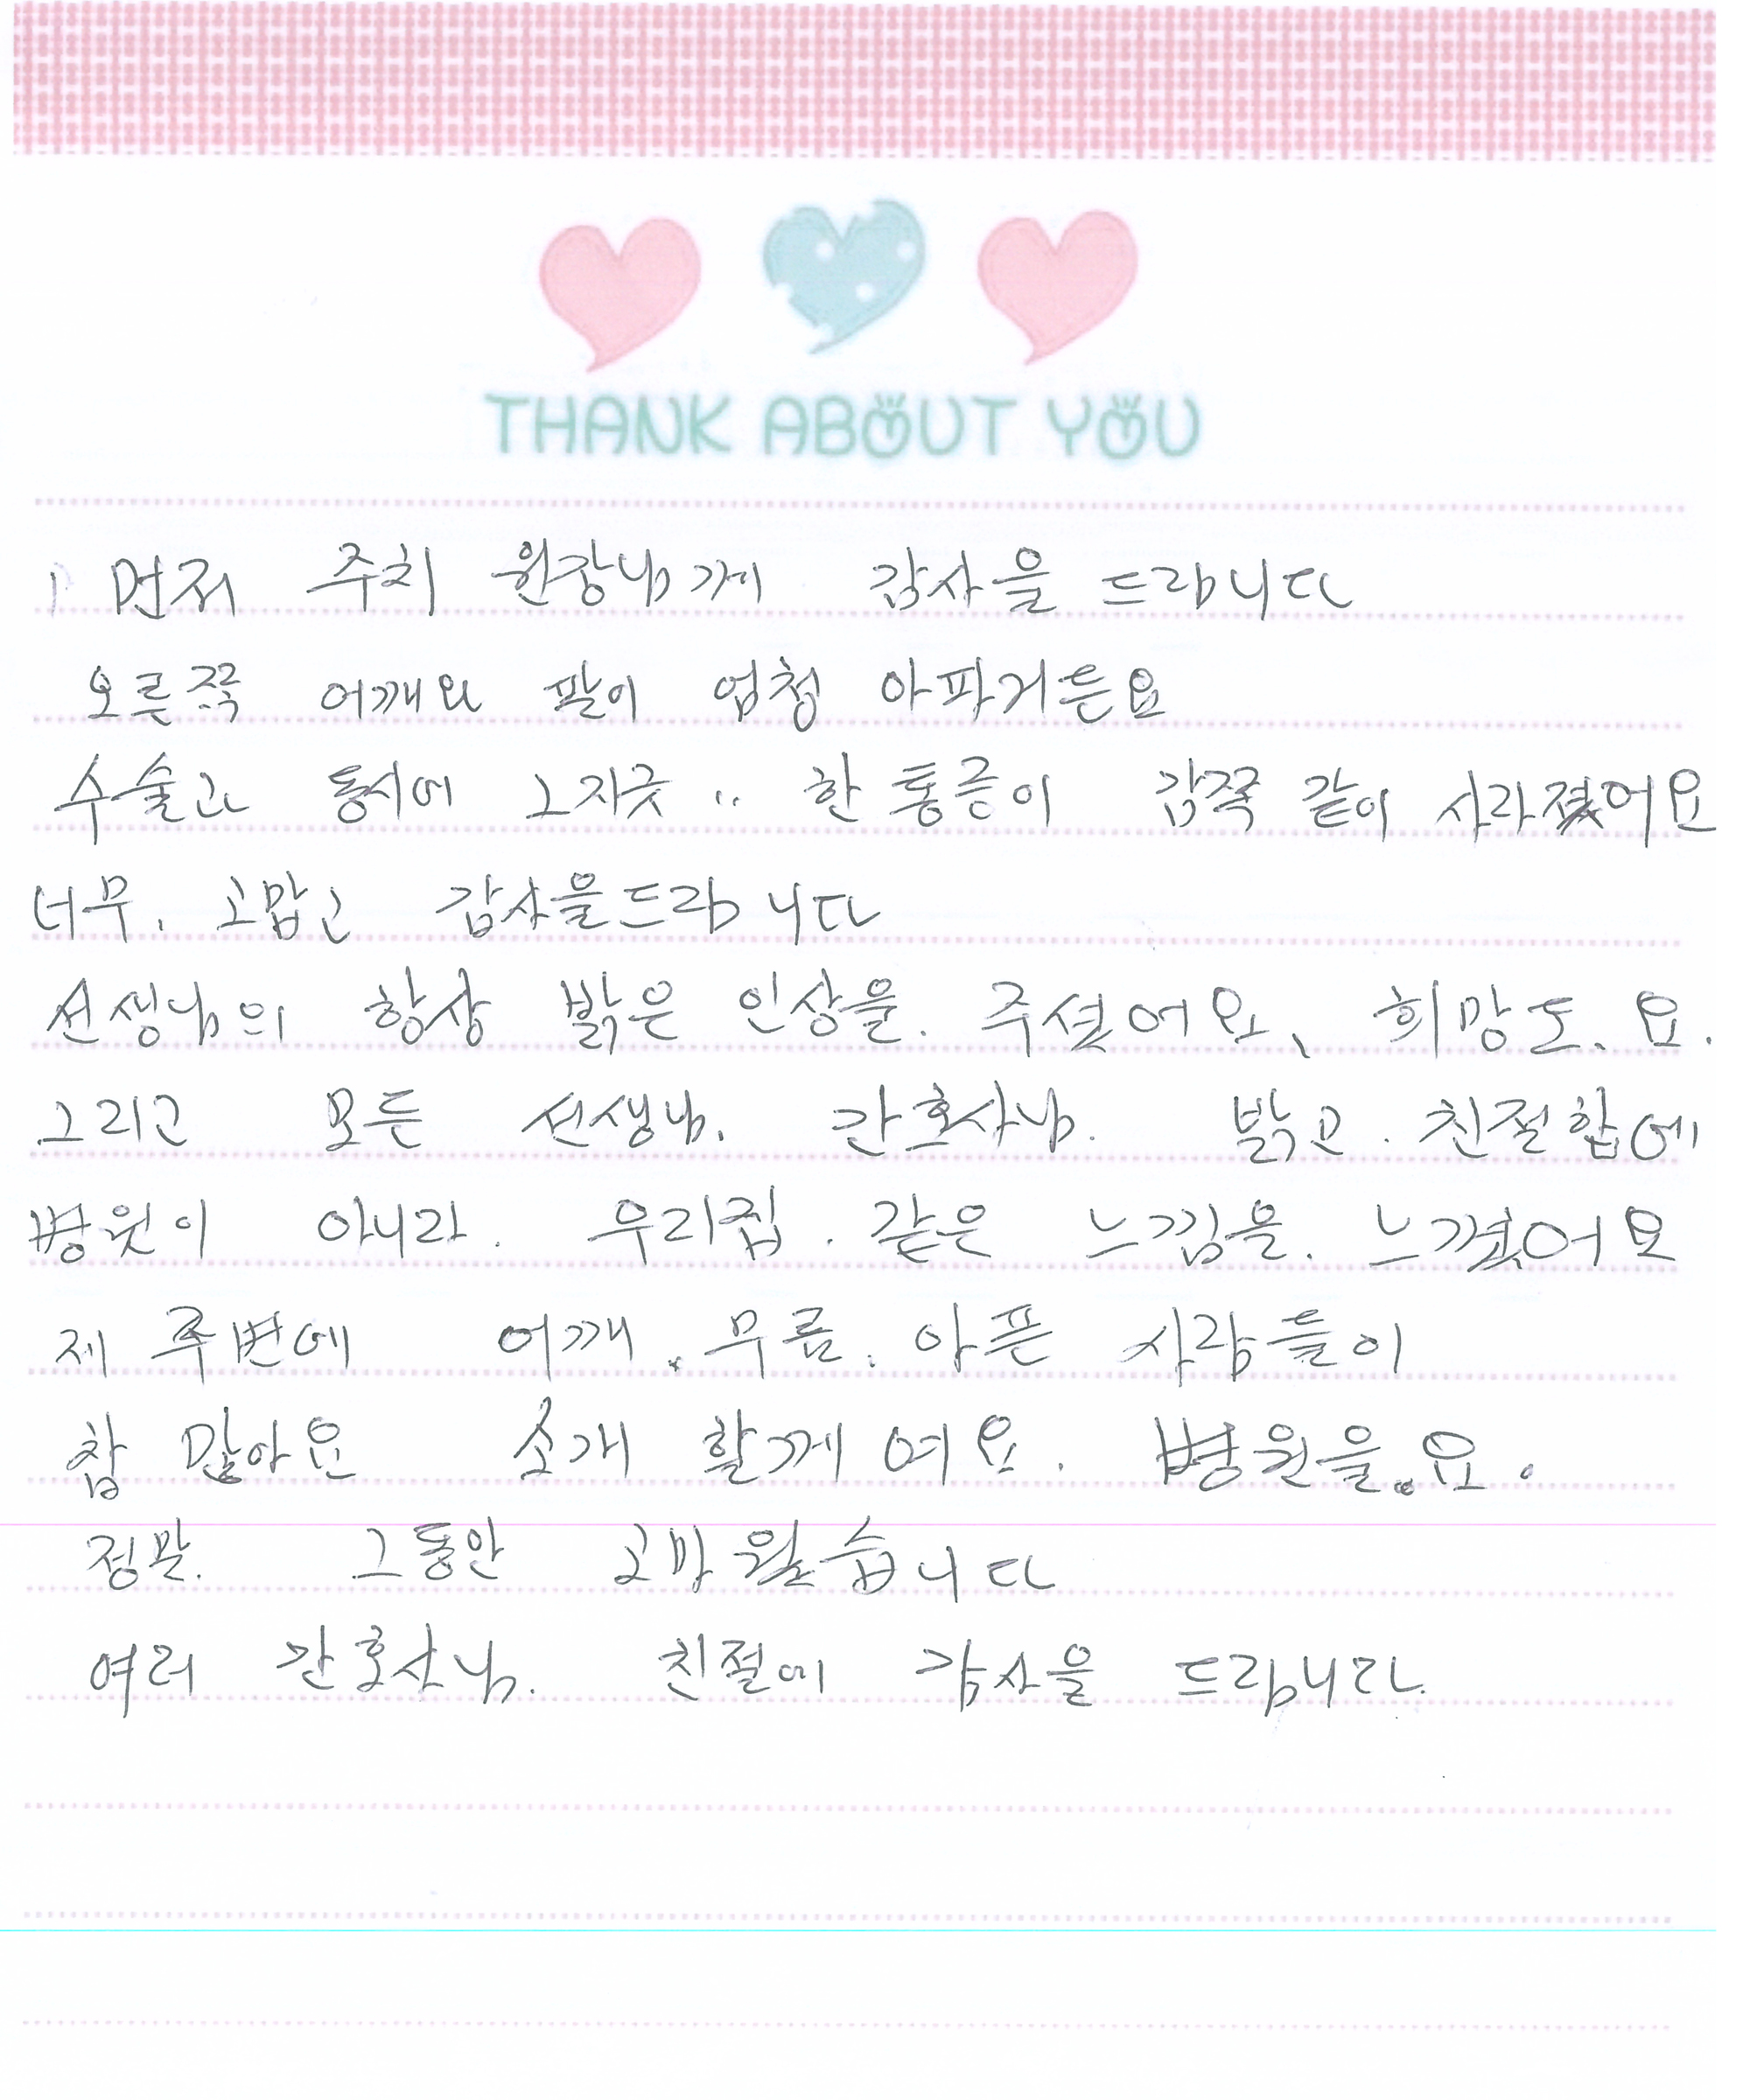 THANK ABOUT YOU
먼저 주치 원장님께 감사을 드립니다
오른쪽 어깨와 팔이 엄청 아파거든요
수술과 동시에 그지긋 " 한 통증이 감쪽 같이 사라졌어요
너무. 고맙고 감사을드립니다
선생님의 항상 밝은 인상을. 주셨어요, 희망도. 요.
그리고 모든 선생님. 간호사님. 밝고. 친절함에
병원이 아니라. 우리집. 같은 느낌을. 느꼈어요
제 주변에 어깨. 무릎. 아픈 사람들이
참 많아요 소개 할께여요. 병원을.요.
정말. 그동안 고마웠습니다
여러 간호사님. 친절에 감사을 드립니다.